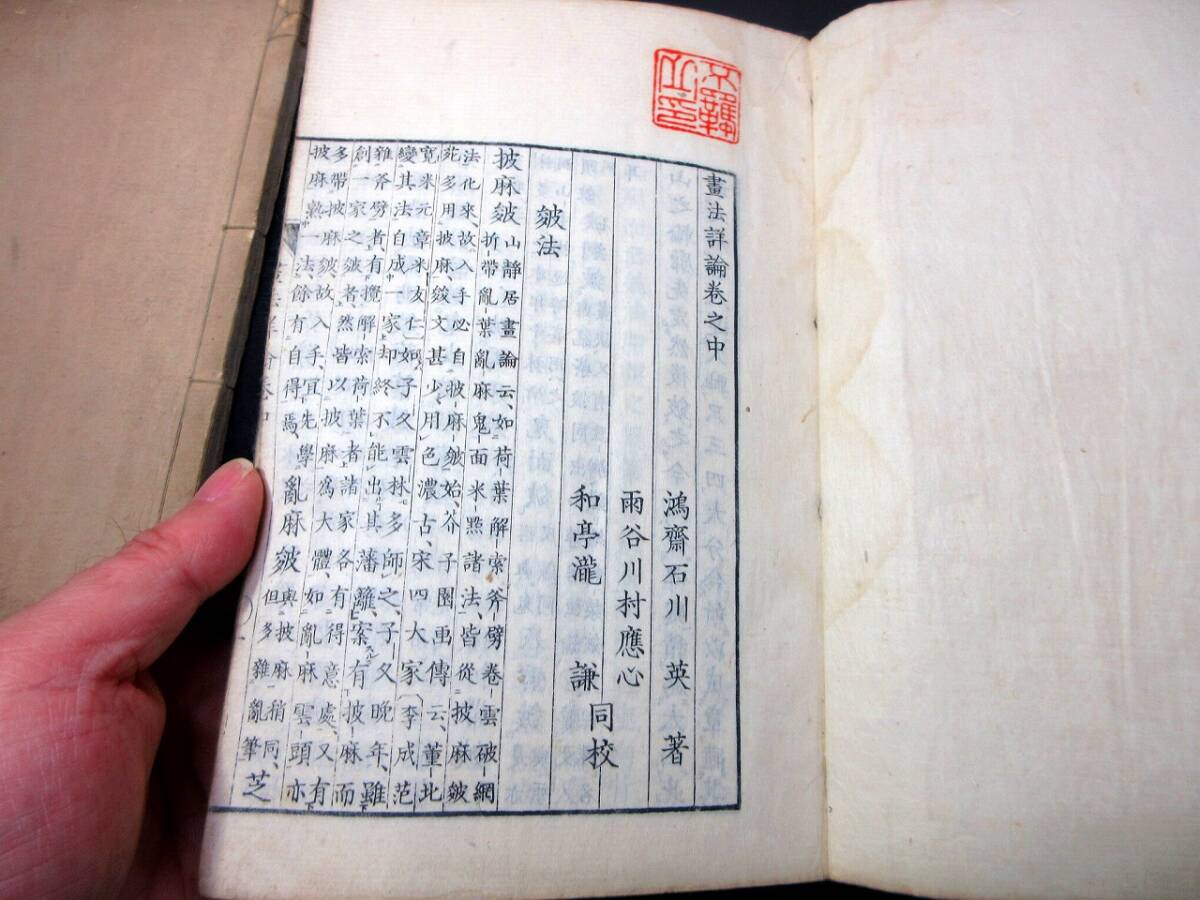 不羈
畫法詳論卷之中
鴻齋石川 英 著
雨谷川村應心
和亭瀧 謙 同校
皴法
披麻皴 山靜居畫論云、如荷葉解索斧劈卷雲破網
折帶亂葉亂麻鬼面米㸃諸法、皆從披麻皴
法化來、故入手必自披麻皴始、芥子園画傳云、董北
苑多用披麻、皴文甚少用色濃古、宋四大家(李成范
寬米元章米友仁)如子久雲林多師之、子久晚年、雖
變其法自成一家却終不能出其藩籬、案有披麻而
雜斧劈者、有攪解索荷葉者、諸家各有得意處、又有
創一家之皴者、然皆以披麻爲大體、如亂麻雲頭亦
多帶披麻皴、故入手、宜先學
披麻熟一法、餘有自得焉、
亂麻皴 與披麻稍同、
但多雜亂筆
芝